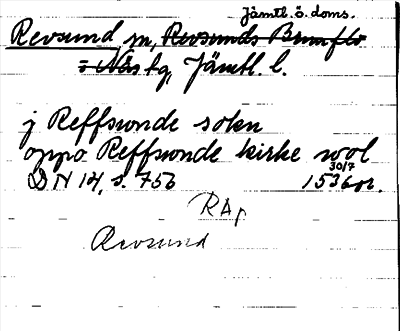 Jämtl. ö. doms.
Revsund sn, Revsunds Brunflo
o Näs tg, Jämtl. l.
j Reffswnde sokn
oppo Reffswnde kirke wol
30/7
DN 14, s. 756 1536 or.
RAp
Revsund